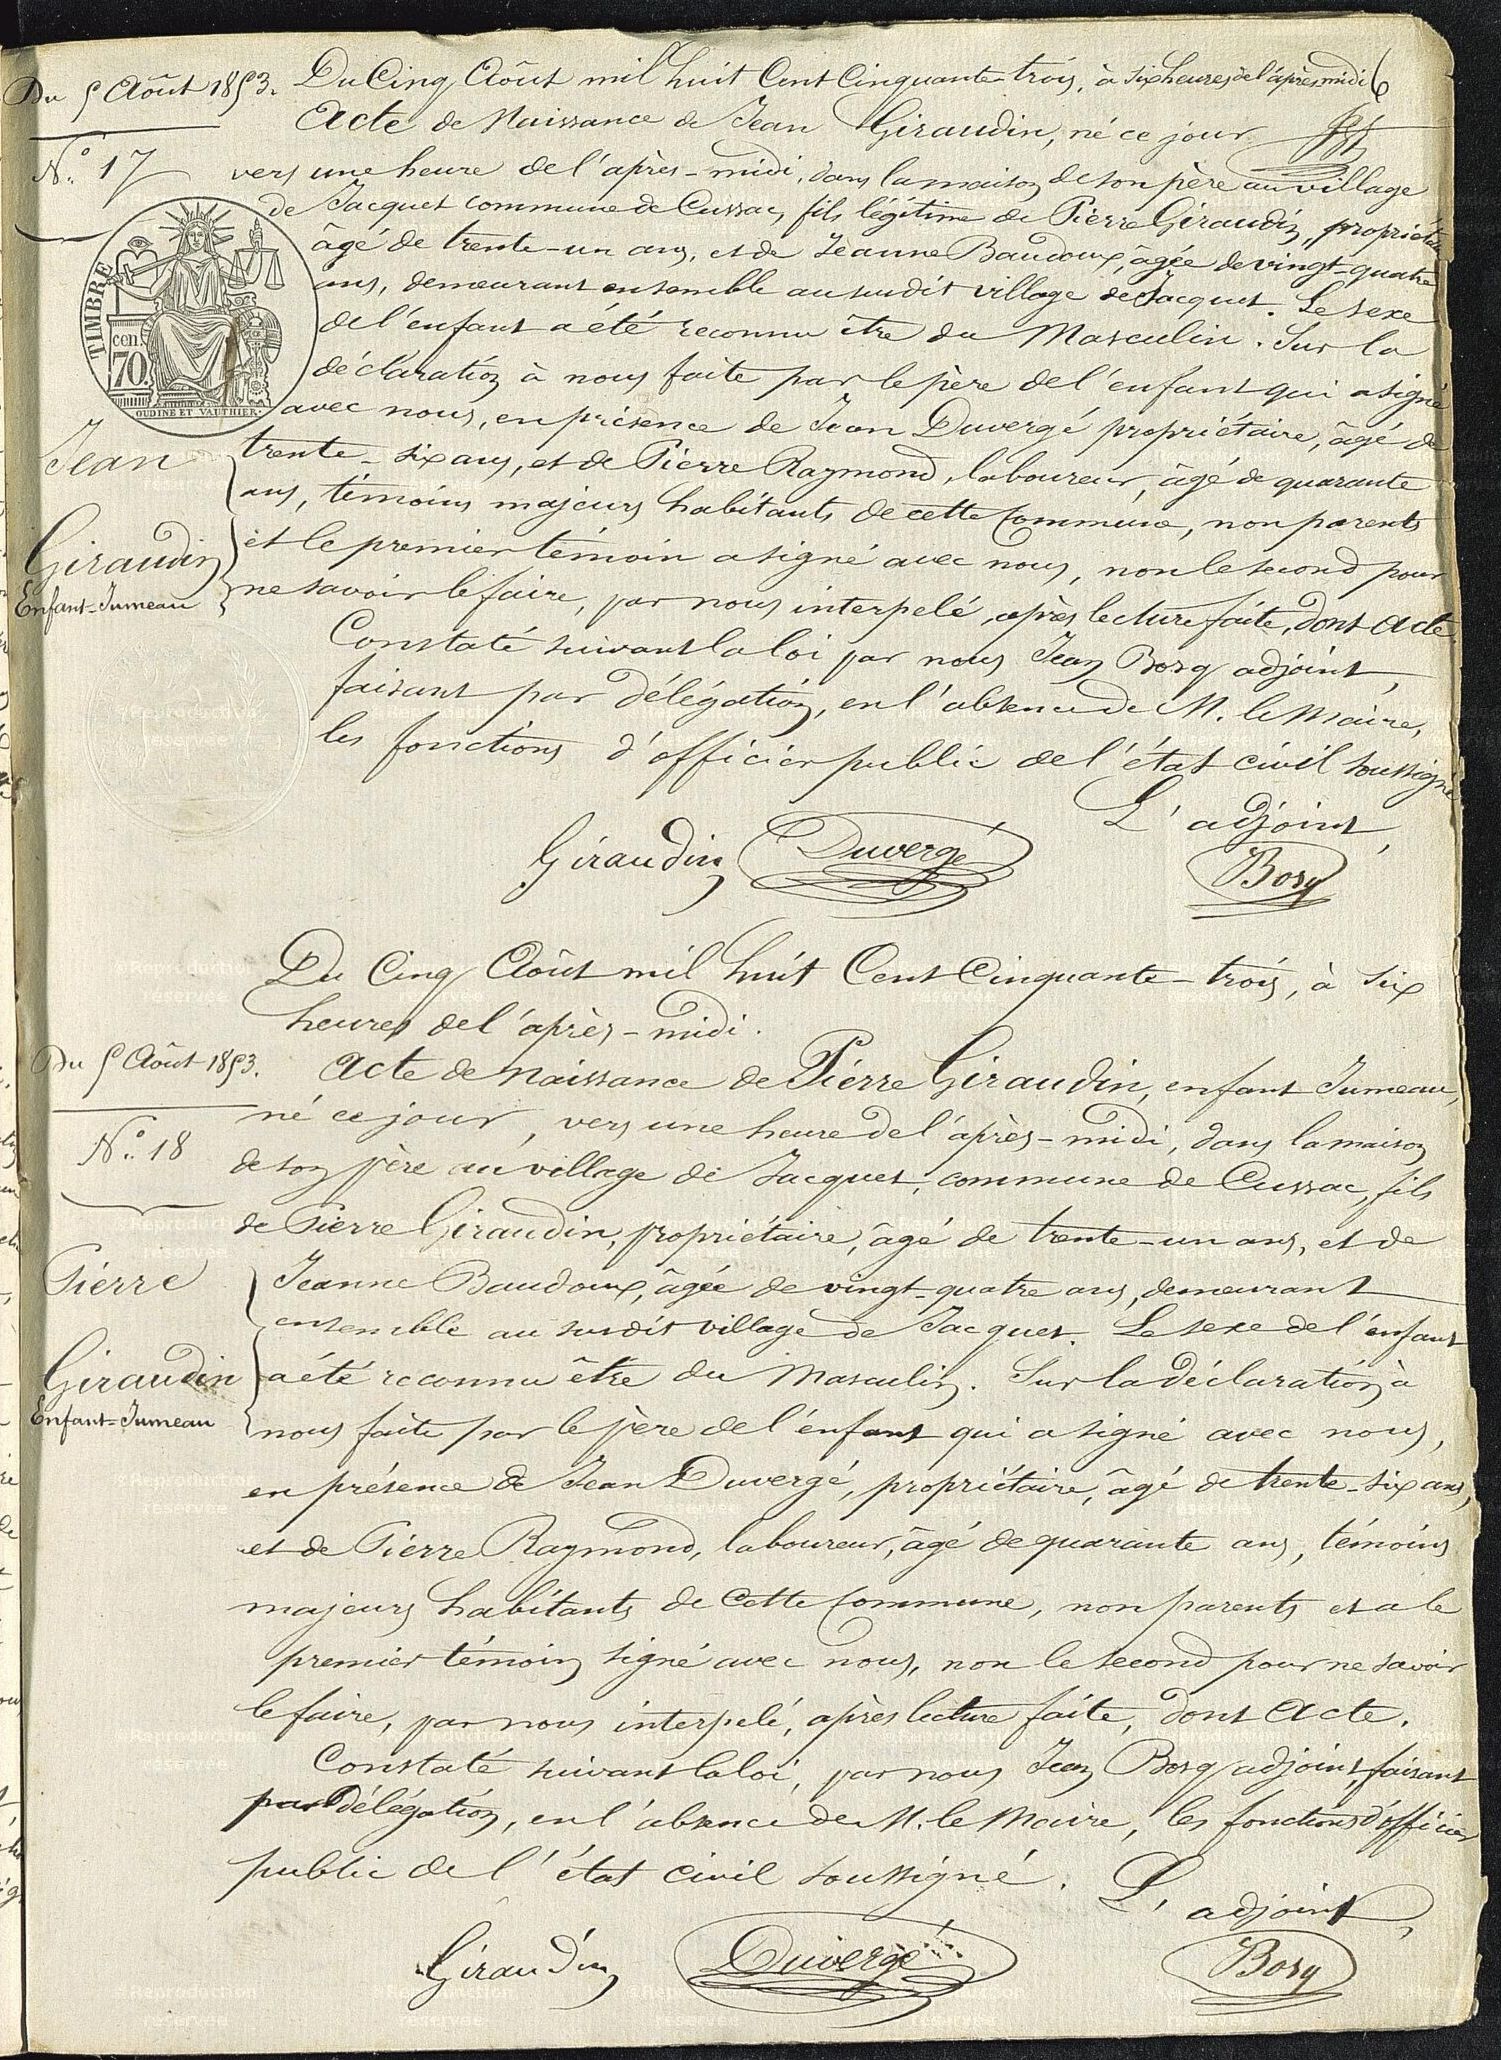 Du 5 Août 1853.
N.° 17
TIMBRE
cen.
70
OUDINE ET VAUTHIER.
Jean
Giraudin
Enfant-Jumeau
6
Du Cinq Août mil huit Cent Cinquante-trois, à six heures de l'après midi
Acte de Naissance de Jean Giraudin, né ce jour
vers une heure de l'après-midi, dans la maison de son père au village
de Jacquet commune de Cussac, fils légitime de Pierre Giraudin, propriétaire
âgé de trente-un ans, et de Jeanne Baudoux, âgée de vingt-quatre
ans, demeurant ensemble au susdit village de Jacquet. Le sexe
de l'enfant a été reconnu être du Masculin. Sur la
déclaration à nous faite par le père de l'enfant qui a signé
avec nous, en présence de Jean Duvergé propriétaire, âgé de
trente-six ans, et de Pierre Raymond, laboureur, âgé de quarante
ans, témoins majeurs habitants de cette Commune, non parents
et le premier témoin a signé avec nous, non le second pour
ne savoir le faire, par nous interpelé, après lecture faite, dont Acte.
Constaté suivant la loi par nous Jean Bosq adjoint,
faisant par délégation, en l'absence de M. le Maire,
les fonctions d'officier public de l'état civil soussigné
L'adjoint,
Giraudin Duvergé Bosq
Du 5 Août 1853.
N.° 18
Pierre
Giraudin
Enfant-Jumeau
Du Cinq Août mil huit Cent Cinquante-trois, à six
heures de l'après-midi.
Acte de Naissance de Pierre Giraudin, enfant Jumeau,
né ce jour, vers une heure de l'après-midi, dans la maison
de son père au village de Jacquet, commune de Cussac, fils
de Pierre Giraudin, propriétaire, âgé de trente-un ans, et de
Jeanne Baudoux, âgée de vingt-quatre ans, demeurant
ensemble au susdit village de Jacquet. Le sexe de l'enfant
a été reconnu être du Masculin. Sur la déclaration à
nous faite par le père de l'enfant qui a signé avec nous,
en présence de Jean Duvergé, propriétaire, âgé de trente-six ans,
et de Pierre Raymond, laboureur, âgé de quarante ans, témoins
majeurs habitants de Cette Commune, non parents et a le
premier témoin signé avec nous, non le second pour ne savoir
le faire, par nous interpelé, après lecture faite, dont Acte.
Constaté suivant la loi, par nous Jean Bosq adjoint, faisant
par délégation, en l'absence de M. le Maire, les fonctions d'officier
public de l'état civil soussigné.
L'adjoint,
Giraudin Duvergé Bosq